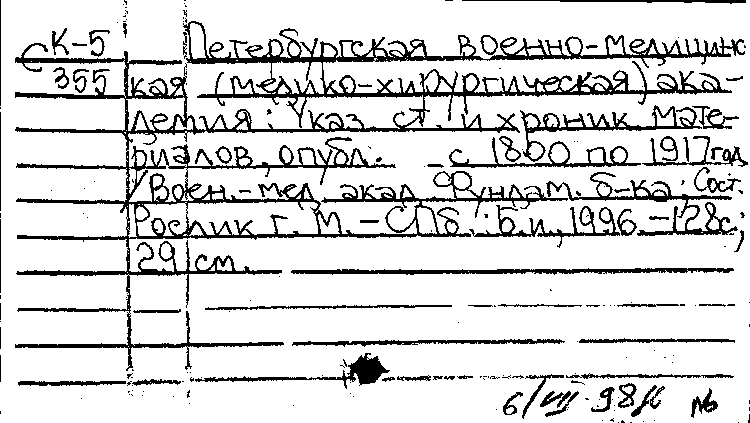 С К-5 Петербургская военно-медицинс
355 кая (медико-хирургическая) ака-
демия: Указ. ст. и хроник. мате-
риалов, опубл. с 1800 по 1917 год
/ Воен.-мед. акад. Фундам. б-ка; Сост.
Рослик Г. М. - СПб.: Б.и., 1996. - 128с;
29 см.
6/VIII 98